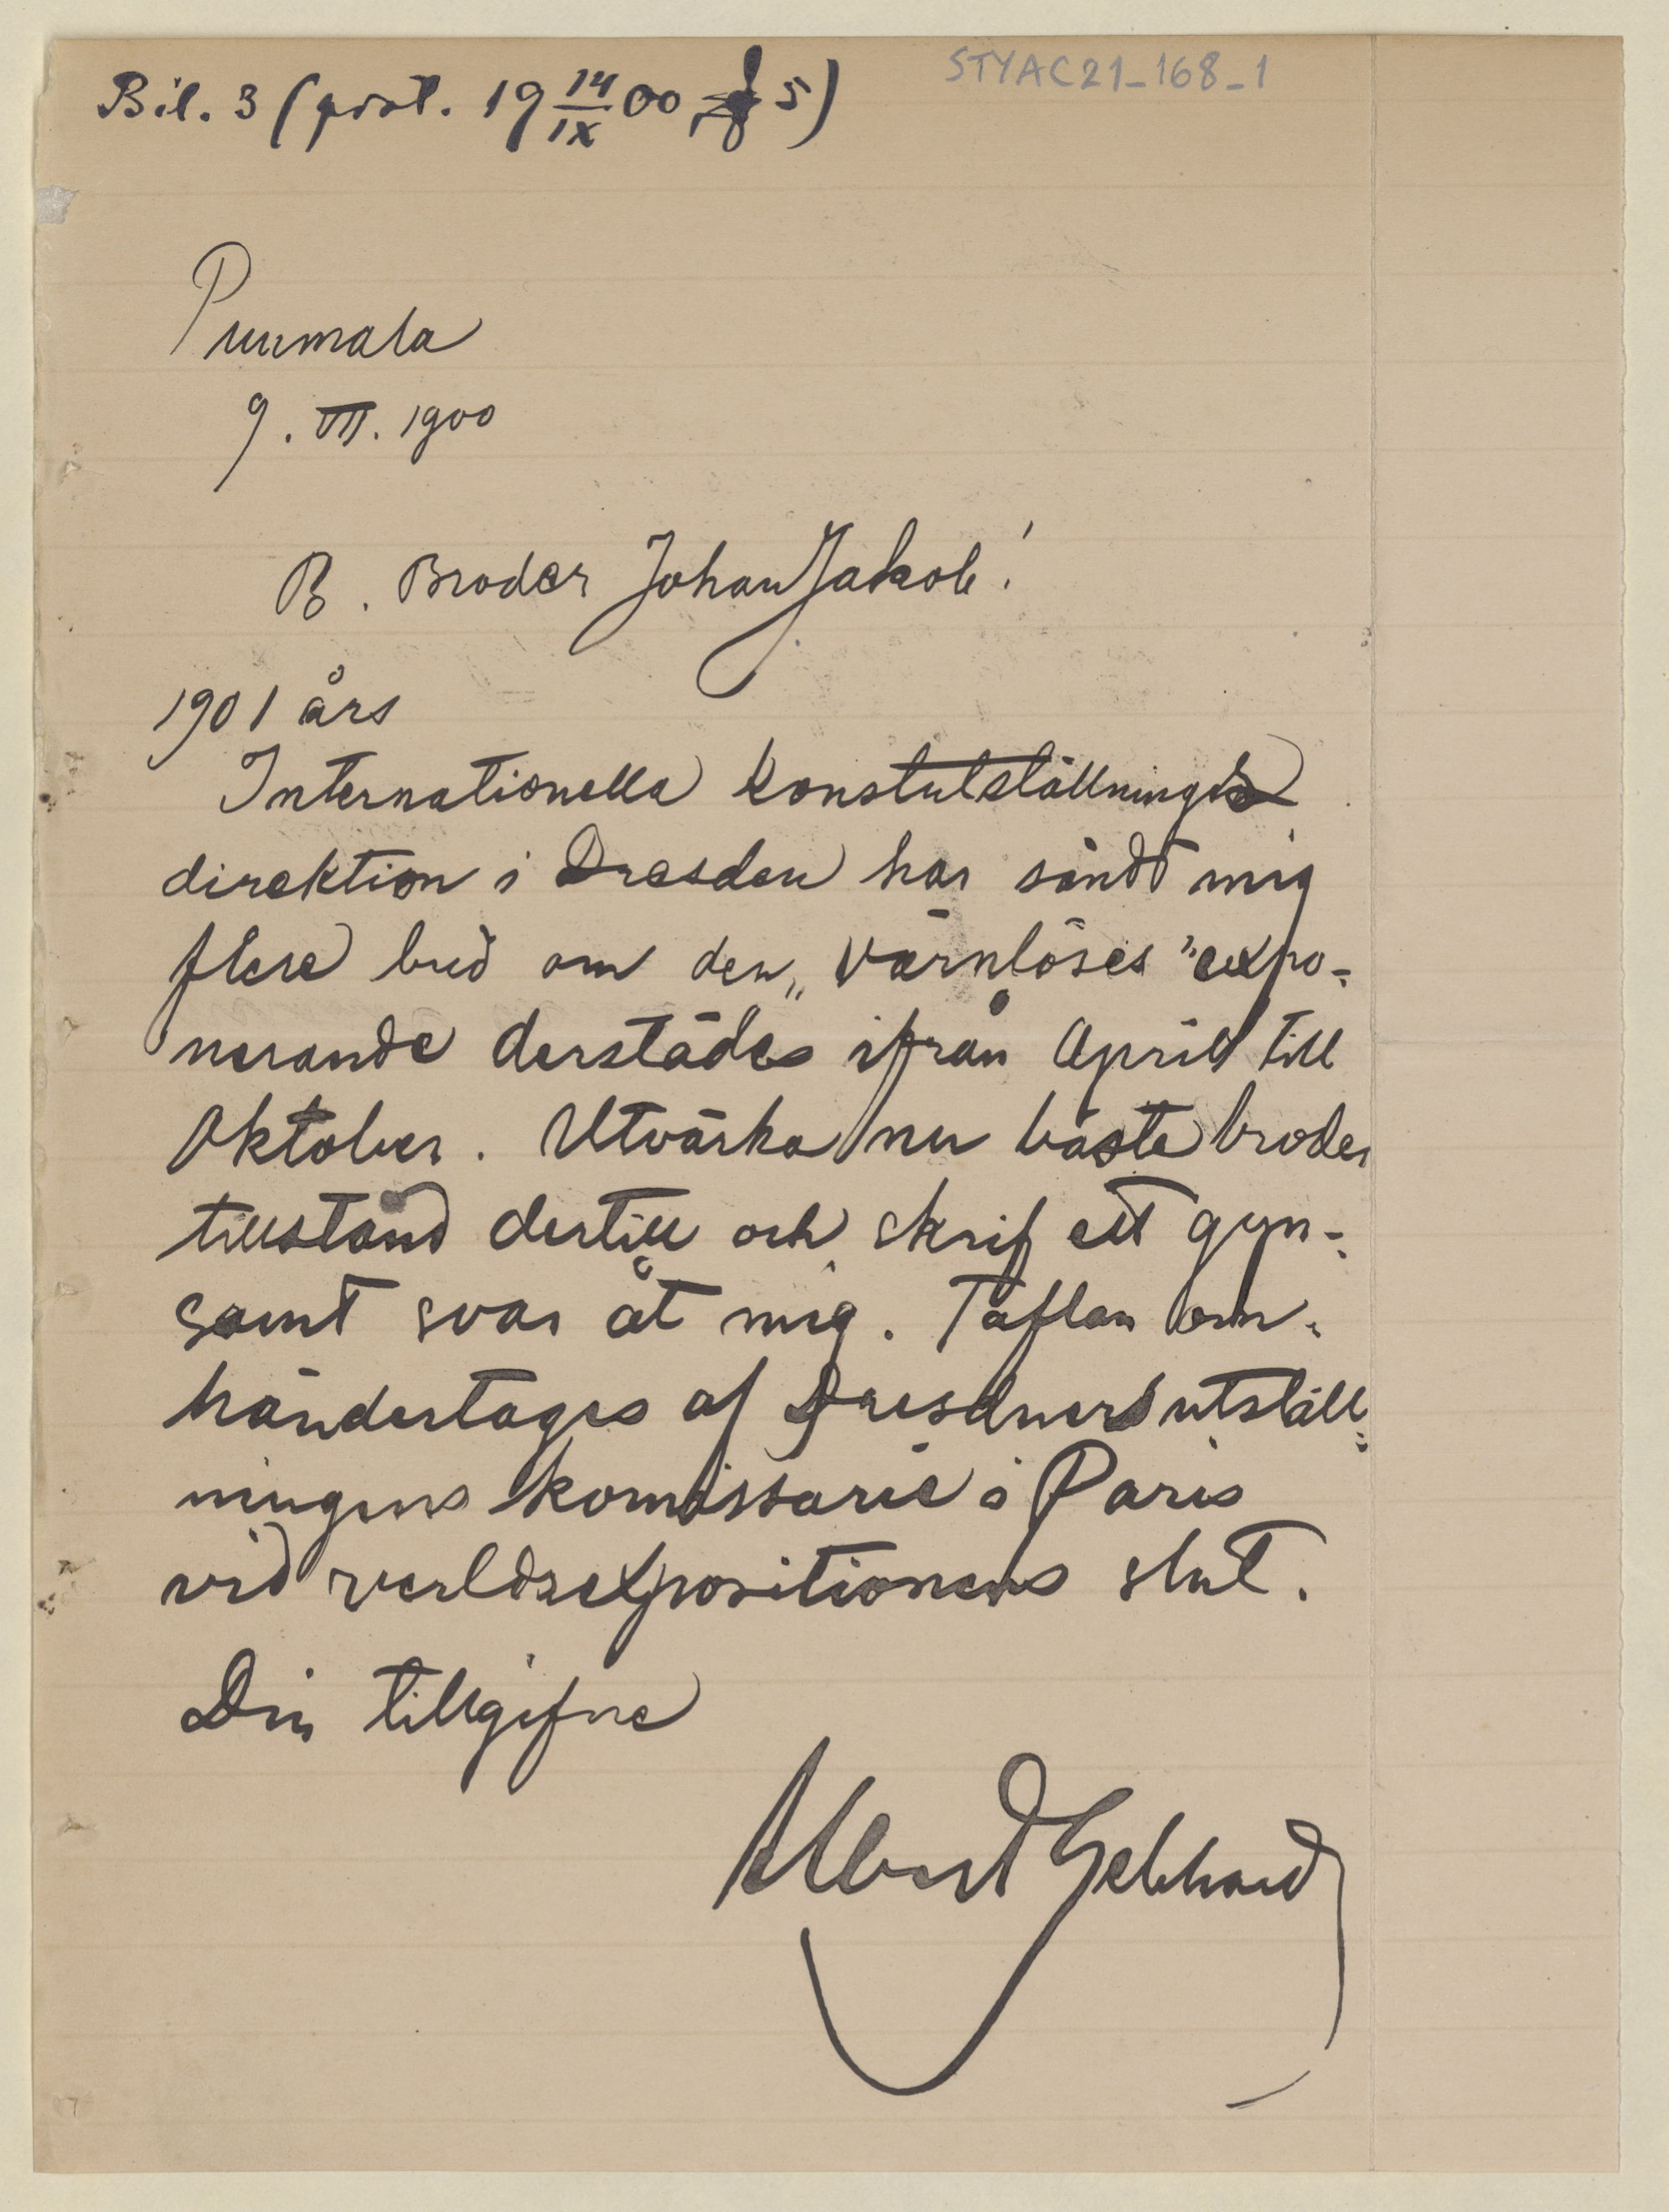 Bil. 3 (prot. 19 14/IX 00, § 5)
STYAC21_168_1
Puumala
9. VII. 1900
B. Broder Johan Jakob!
1901 års
Internationella konstutställnings
direktion i Dresden har sändt mig
flere bud om den „Värnlöses" expo-
nerande derstädes ifrån April till
Oktober. Utvärka nu bäste broder
tillstånd dertill och skrif ett gyn-
samt svar åt mig. Taflan om-
händertages af Dresdner utställ-
ningens komissarie i Paris
vid verldsexpositionens slut.
Din tillgifne
Albert Gebhard